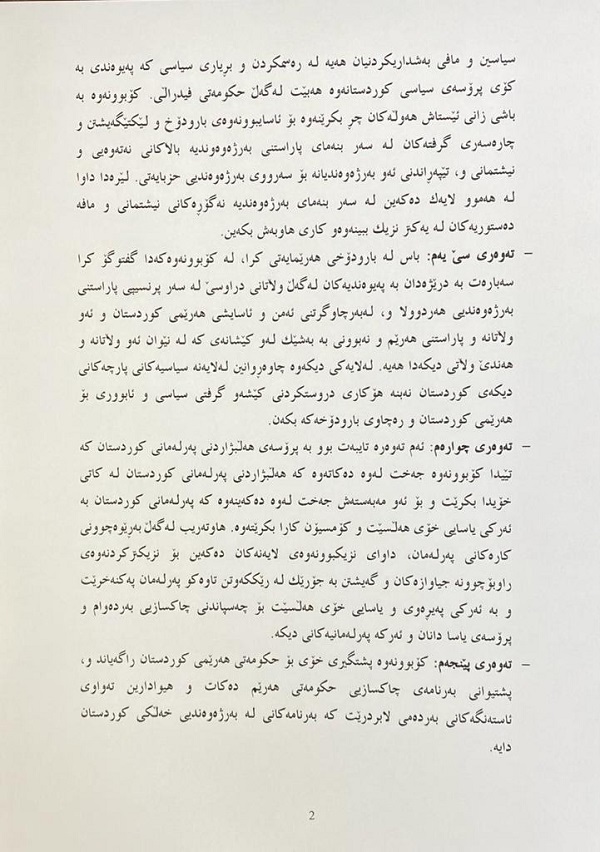 سیاسین و مافی بەشداریکردنیان هەیە لە رەسمکردن و بڕیاری سیاسی کە پەیوەندی بە
کۆی پرۆسەی سیاسی کوردستانەوە هەبێت لەگەڵ حکومەتی فیدراڵی. کۆبوونەوە بە
باشی زانی ئێستاش هەوڵەکان چڕ بکرێنەوە بۆ ئاساییوونەوەی بارودۆخ و لێکتێگەیشتن و
چارەسەری گرفتەکان لە سەر بنەمای پاراستنی بەرژەوەندیە بالاکانی نەتەوەیی و
نیشتمانی و، تێپەڕاندنی ئەو بەرژەوەندیانە بۆ سەرووی بەرژەوەندیی حزبایەتی. لێرەدا داوا
لە هەموو لایەك دەکەین لە سەر بنەمای بەرژەوەندیە نەگۆڕەکانی نیشتمانی و مافە
دەستوریەکان لە یەکتر نزیك ببینەوەو کاری هاوبەش بکەین.
– تەوەری سێ یەم: باس لە بارودۆخی هەرێمایەتی کرا، لە کۆبوونەوەکەدا گفتوگۆ کرا
سەبارەت بە درێژەدان بە پەیوەندیەکان لەگەڵ ولاتانی دراوسێ لە سەر پرنسیپی پاراستنی
بەرژەوەندیی هەردوولا و، لەبەرچاوگرتنی ئەمن و ئاسایشی هەرێمی کوردستان و ئەو
ولاتانە و پاراستنی هەرێم و نەبوونی بە بەشێك لەو کێشانەی کە لە نێوان ئەو ولاتانە و
هەندێ ولاتی دیکەدا هەیە. لەلایەکی دیکەوە چاوەڕوانین لەلایەنە سیاسیەکانی پارچەکانی
دیکەی کوردستان نەبنە هۆکاری دروستکردنی کێشەو گرفتی سیاسی و ئابووری بۆ
هەرێمی کوردستان و رەچاوی بارودۆخەکە بکەن.
– تەوەری چوارەم: ئەم تەوەرە تایبەت بوو بە پرۆسەی هەڵبژاردنی پەرلەمانی کوردستان کە
تێیدا کۆبوونەوە جەخت لەوە دەکاتەوە کە هەڵبژاردنی پەرلەمانی کوردستان لە کاتی
خۆیدا بکرێت و بۆ ئەو مەبەستەش جەخت لەوە دەکەینەوە کە پەرلەمانی کوردستان بە
ئەرکی یاسایی خۆی هەڵسێت و کۆمسیۆن کارا بکرێتەوە. هاوتەریب لەگەڵ بەڕێوەچوونی
کارەکانی پەرلەمان، داوای نزیکبوونەوەی لایەنەکان دەکەین بۆ نزیکترکردنەوەی
راوبۆچوونە جیاوازەکان و گەیشتن بە جۆرێك لە رێککەوتن تاوەکو پەرلەمان پەکنەخرێت
و بە ئەرکی پەیڕەوی و یاسایی خۆی هەڵسێت بۆ چەسپاندنی چاکسازیی بەردەوام و
پرۆسەی یاسا دانان و ئەرکە پەرلەمانیەکانی دیکە.
– تەوەری پێنجەم: کۆبوونەوە پشتگیری خۆی بۆ حکومەتی هەرێمی کوردستان راگەیاند و،
پشتیوانی بەرنامەی چاکسازیی حکومەتی هەرێم دەکات و هیوادارین تەواوی
ئاستەنگەکانی بەردەمی لابردرێت کە بەرنامەکانی لە بەرژەوەندیی خەڵکی کوردستان
دایە.
2